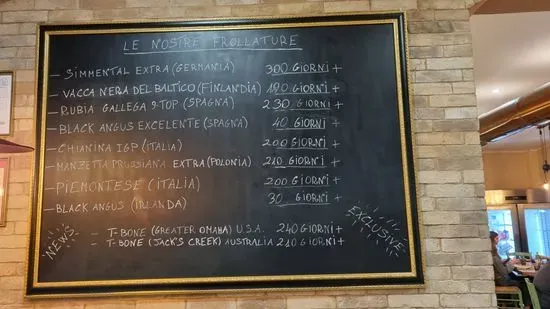 LE NOSTRE FROLLATURE
- SIMMENTAL EXTRA (GERMANIA) 300 GIORNI +
- VACCA NERA DEL BALTICO (FINLANDIA) 190 GIORNI +
- RUBIA GALLEGA 9-TOP (SPAGNA) 230 GIORNI +
- BLACK ANGUS EXCELENTE (SPAGNA) 40 GIORNI +
- CHIANINA IGP (ITALIA) 200 GIORNI +
- MANZETTA PRUSSIANA EXTRA (POLONIA) 210 GIORNI +
- PIEMONTESE (ITALIA) 200 GIORNI +
- BLACK ANGUS (IRLANDA) 30 GIORNI +
NEW
- T-BONE (GREATER OMAHA) U.S.A. 240 GIORNI +
- T-BONE (JACK'S CREEK) AUSTRALIA 210 GIORNI +
EXCLUSIVE